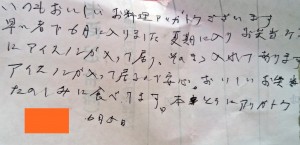 いつもおいしい お料理アリガトウございます
早い者で6月に入りました 夏期に入り お弁当
にアイスノンが入って居り、そのまゝ入れてあります
アイスノンが入って居るので安心。おいしいお弁
たのしみに食べてます。本当にアリガトウ
6月6日